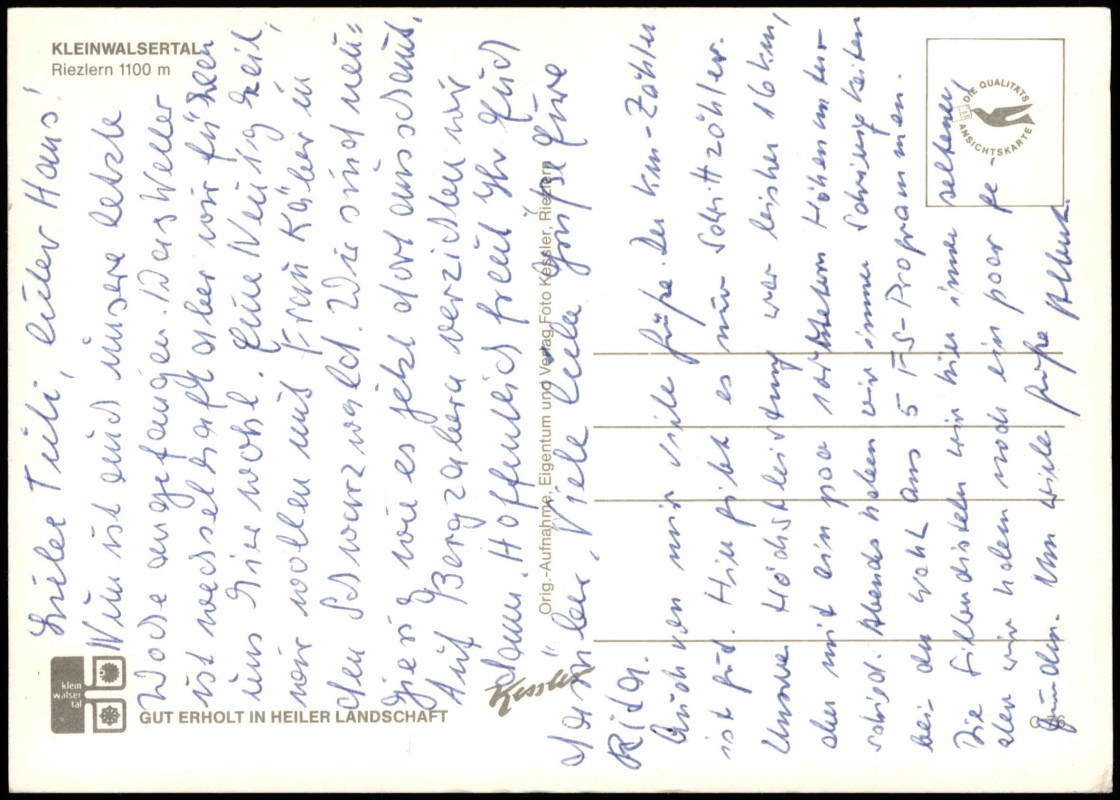 KLEINWALSERTAL
Riezlern 1100 m
Liebe Tuli, lieber Hans!
Nun ist auch unsere letzte
Woche angefangen. Das Wetter
ist wechselhaft aber wir fühlen
uns hier wohl. Eine Zeit,
wir wollen mit Frau Käber in
den Schwarzwald. Wir sind neu=
gierig wie es jetzt dort ausschaut.
Auf Bergzabern verzichten wir
dann. Hoffentlich freut Ihr Euch
darüber. Viele liebe Grüße Eure
Rita.
Auch von mir viele Grüße. Der km-Zähler
ist gut. Hier gibt es nur Schrittzähler.
Unsere Höchstleistung war bisher 16 km,
aber mit ein paar Höhenunter-
schied. Abends haben wir immer Schwierigkeiten
bei der Wahl aus 5 TS-Programmen.
Die werden hier immer seltener,
aber wir haben noch ein paar ge-
funden. Um viele Grüße Albert.
klein
walser
tal
GUT ERHOLT IN HEILER LANDSCHAFT
Kessler
Orig.-Aufnahme, Eigentum und Verlag Foto Kessler, Riezlern
DIE QUALITÄTS
ANSICHTSKARTE